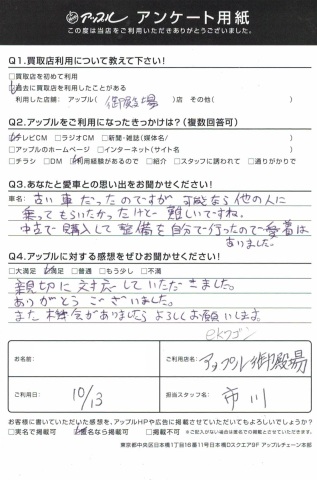 アップル アンケート用紙
この度は当店をご利用いただきありがとうございました。
Q1.買取店利用について教えて下さい!
□買取店を初めて利用
□過去に買取店を利用したことがある
利用した店舗: アップル( 御殿場 )店 その他( )
Q2.アップルをご利用になったきっかけは?(複数回答可)
□テレビCM □ラジオCM □新聞・雑誌(媒体名/ )
□アップルのホームページ □インターネット(サイト名 )
□チラシ □DM □利用経験があるので □紹介 □スタッフに誘われて □通りがかりで
Q3.あなたと愛車との思い出をお聞かせください!
車名: 古い車だったのですが 可能なら他の人に
乗ってもらいたかったけど 難しいですね。
中古で購入して整備を自分で行ったので愛着は
ありました。
Q4.アップルに対する感想をぜひお聞かせください!
□大満足 □満足 □普通 □もう少し □不満
親切に対応していただきました。
ありがとうございました。
また機会がありましたらよろしくお願いします。
ekワゴン
お名前:
ご利用店名: アップル御殿場
ご利用日: 10/13
担当スタッフ名: 市川
お客様に書いていただいた感想を、アップルHPや広告に掲載させていただいてもよろしいでしょうか?
□実名で掲載可 □匿名なら掲載可 ※ご記入がない場合は匿名での掲載とさせていただきます。
東京都中央区日本橋1丁目16番11号日本橋Dスクエア9F アップルチェーン本部